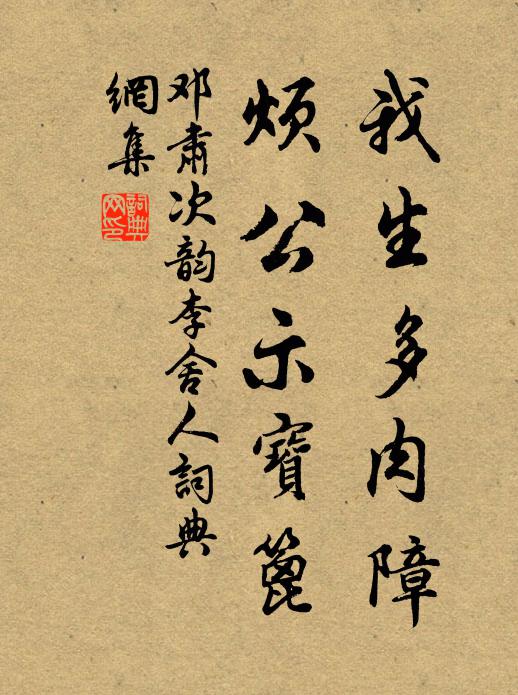 我生多肉障
烦公示寶篦
邓肅次韵李舍人詞典
網集
詞典
网印